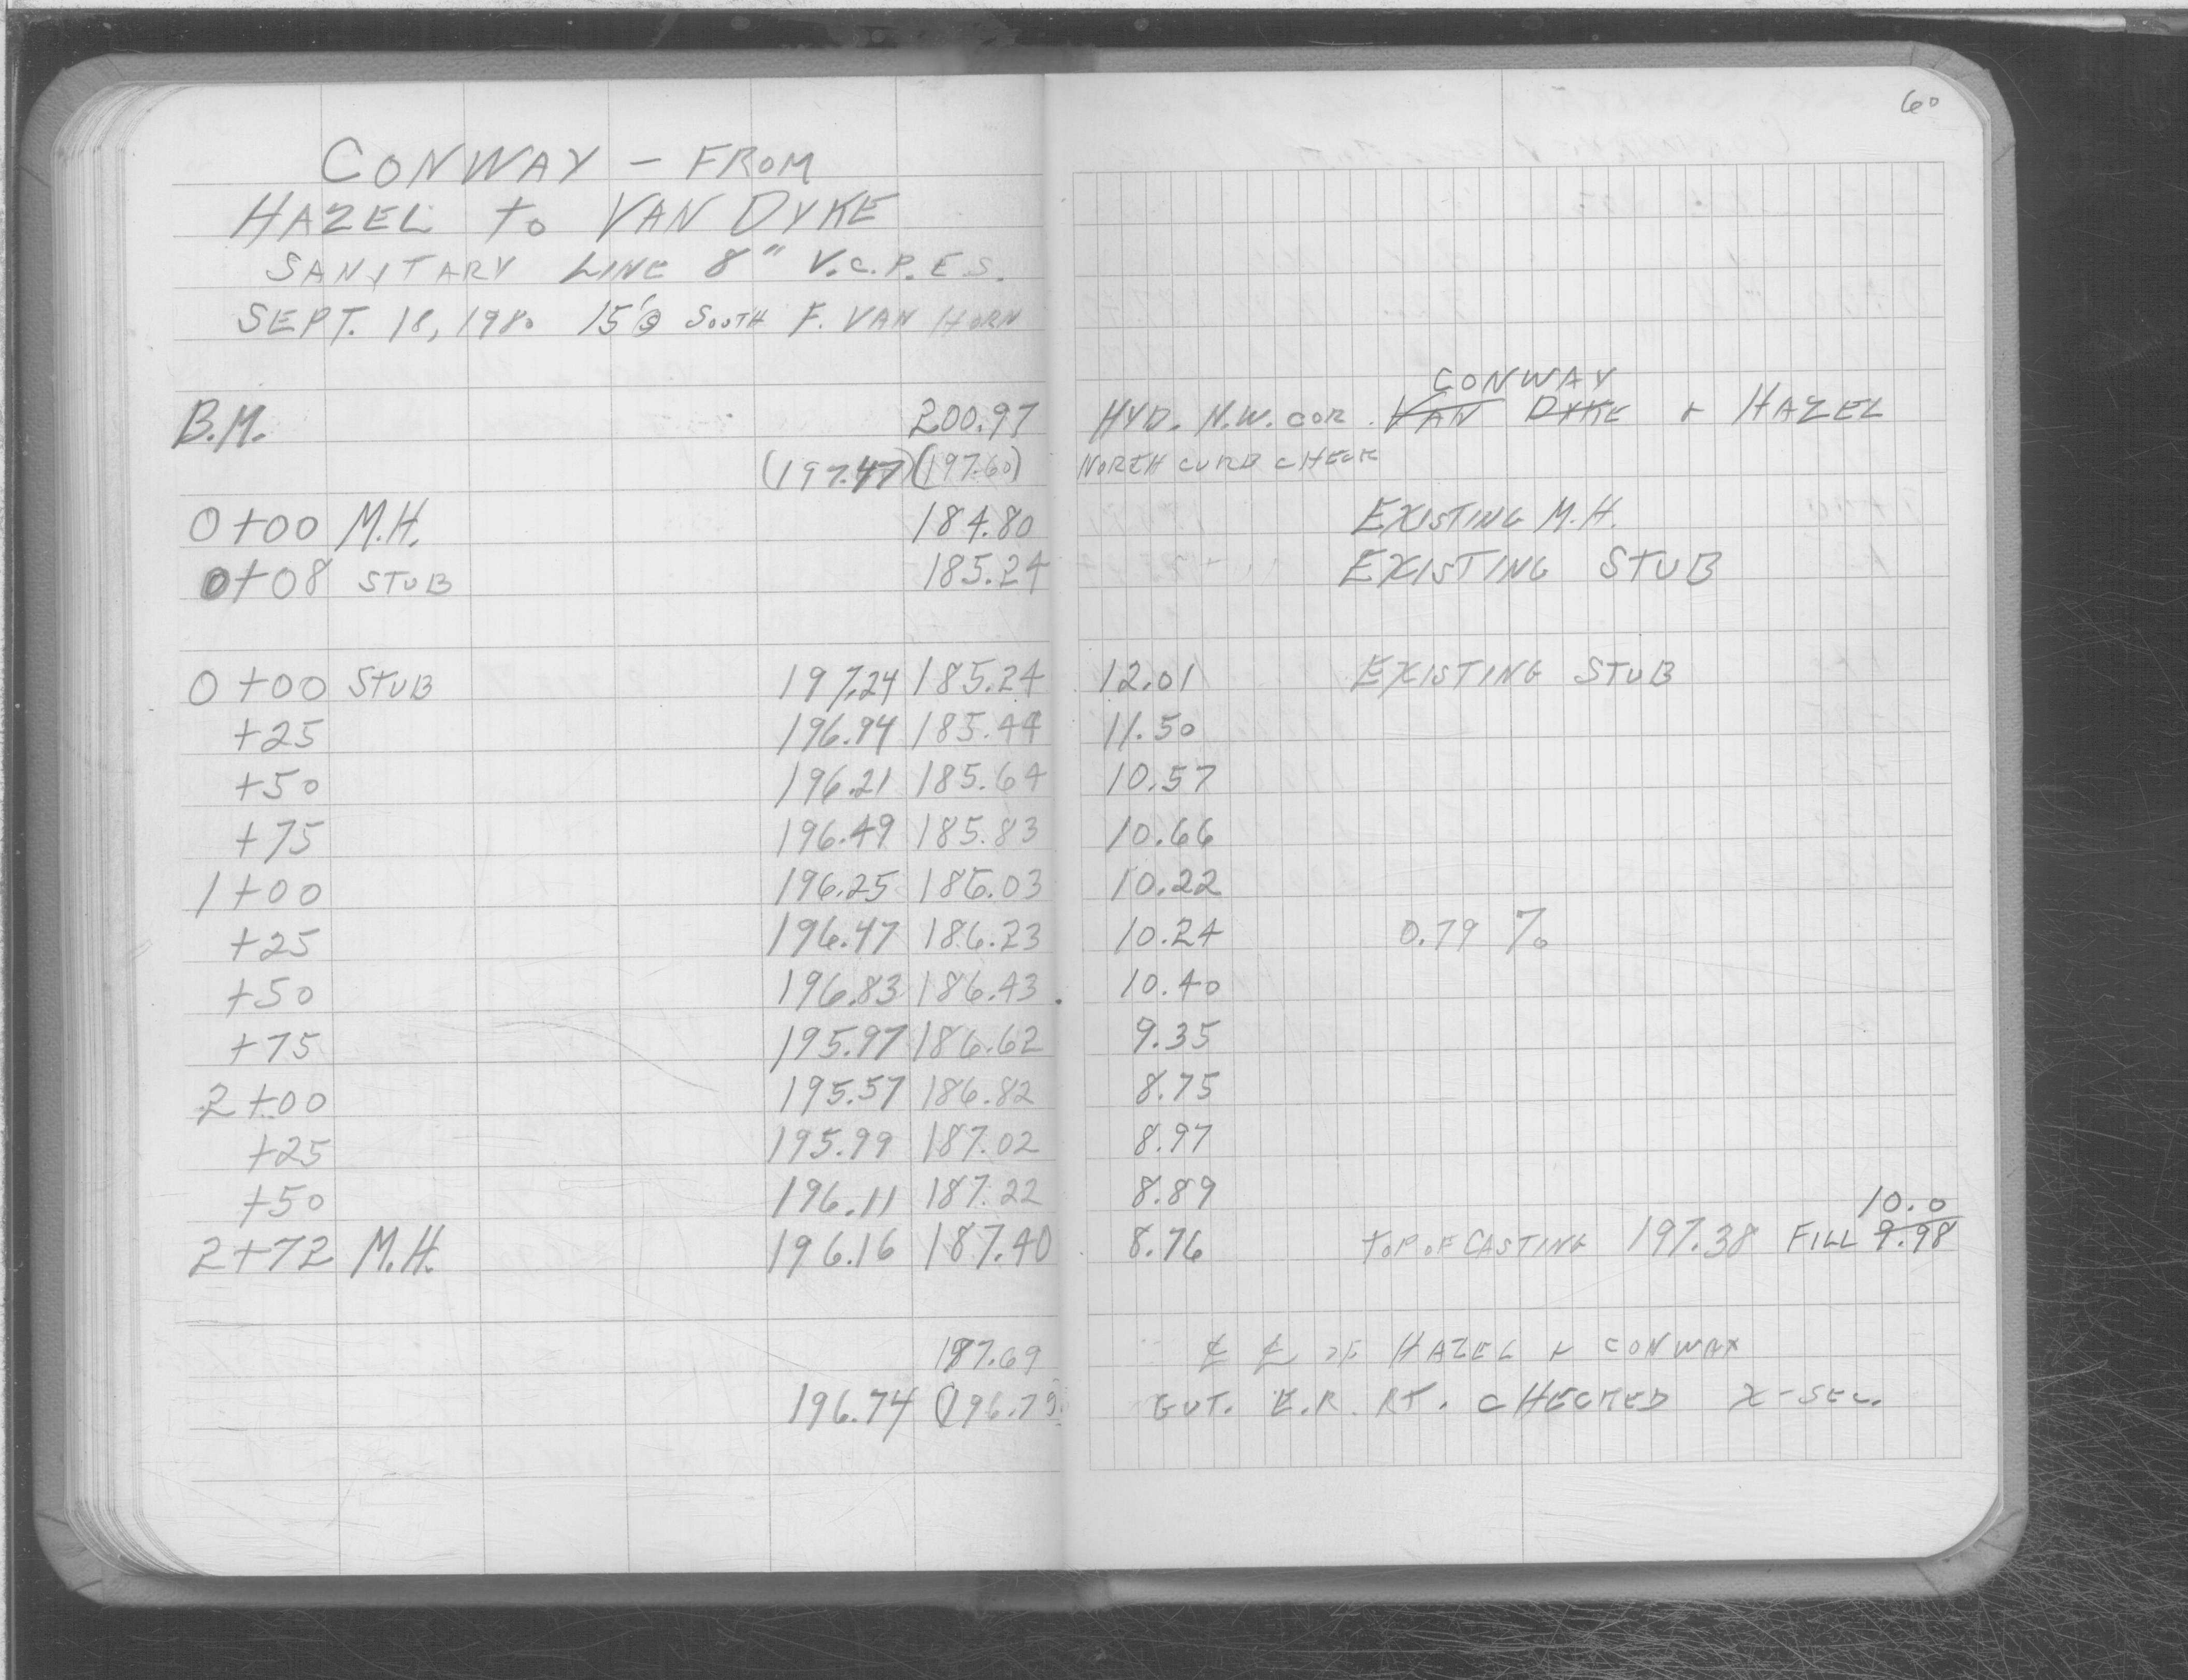 60
CONWAY - FROM
HAZEL to VAN DYKE
SANITARY LINE 8" V.C.P.E.S.
SEPT. 18, 1980 15' SOUTH F. VAN HORN
B.M. 200.97 HYD. N.W. COR. VAN DYKE CONWAY & HAZEL
(197.47) (197.60) NORTH CURB CHECK
0+00 M.H. 184.80 EXISTING M.H.
0+08 STUB 185.24 EXISTING STUB
0+00 STUB 197.24 185.24 12.01 EXISTING STUB
+25 196.94 185.44 11.50
+50 196.21 185.64 10.57
+75 196.49 185.83 10.66
1+00 196.25 186.03 10.22
+25 196.47 186.23 10.24 0.79 %
+50 196.83 186.43 10.40
+75 195.97 186.62 9.35
2+00 195.57 186.82 8.75
+25 195.99 187.02 8.97
+50 196.11 187.22 8.89
2+72 M.H. 196.16 187.40 8.76 TOP OF CASTING 197.38 FILL 9.98 10.0
187.69 ℄ ℄ OF HAZEL & CONWAY
196.74 (196.75) GUT. E.R. RT. CHECKED X-SEC.